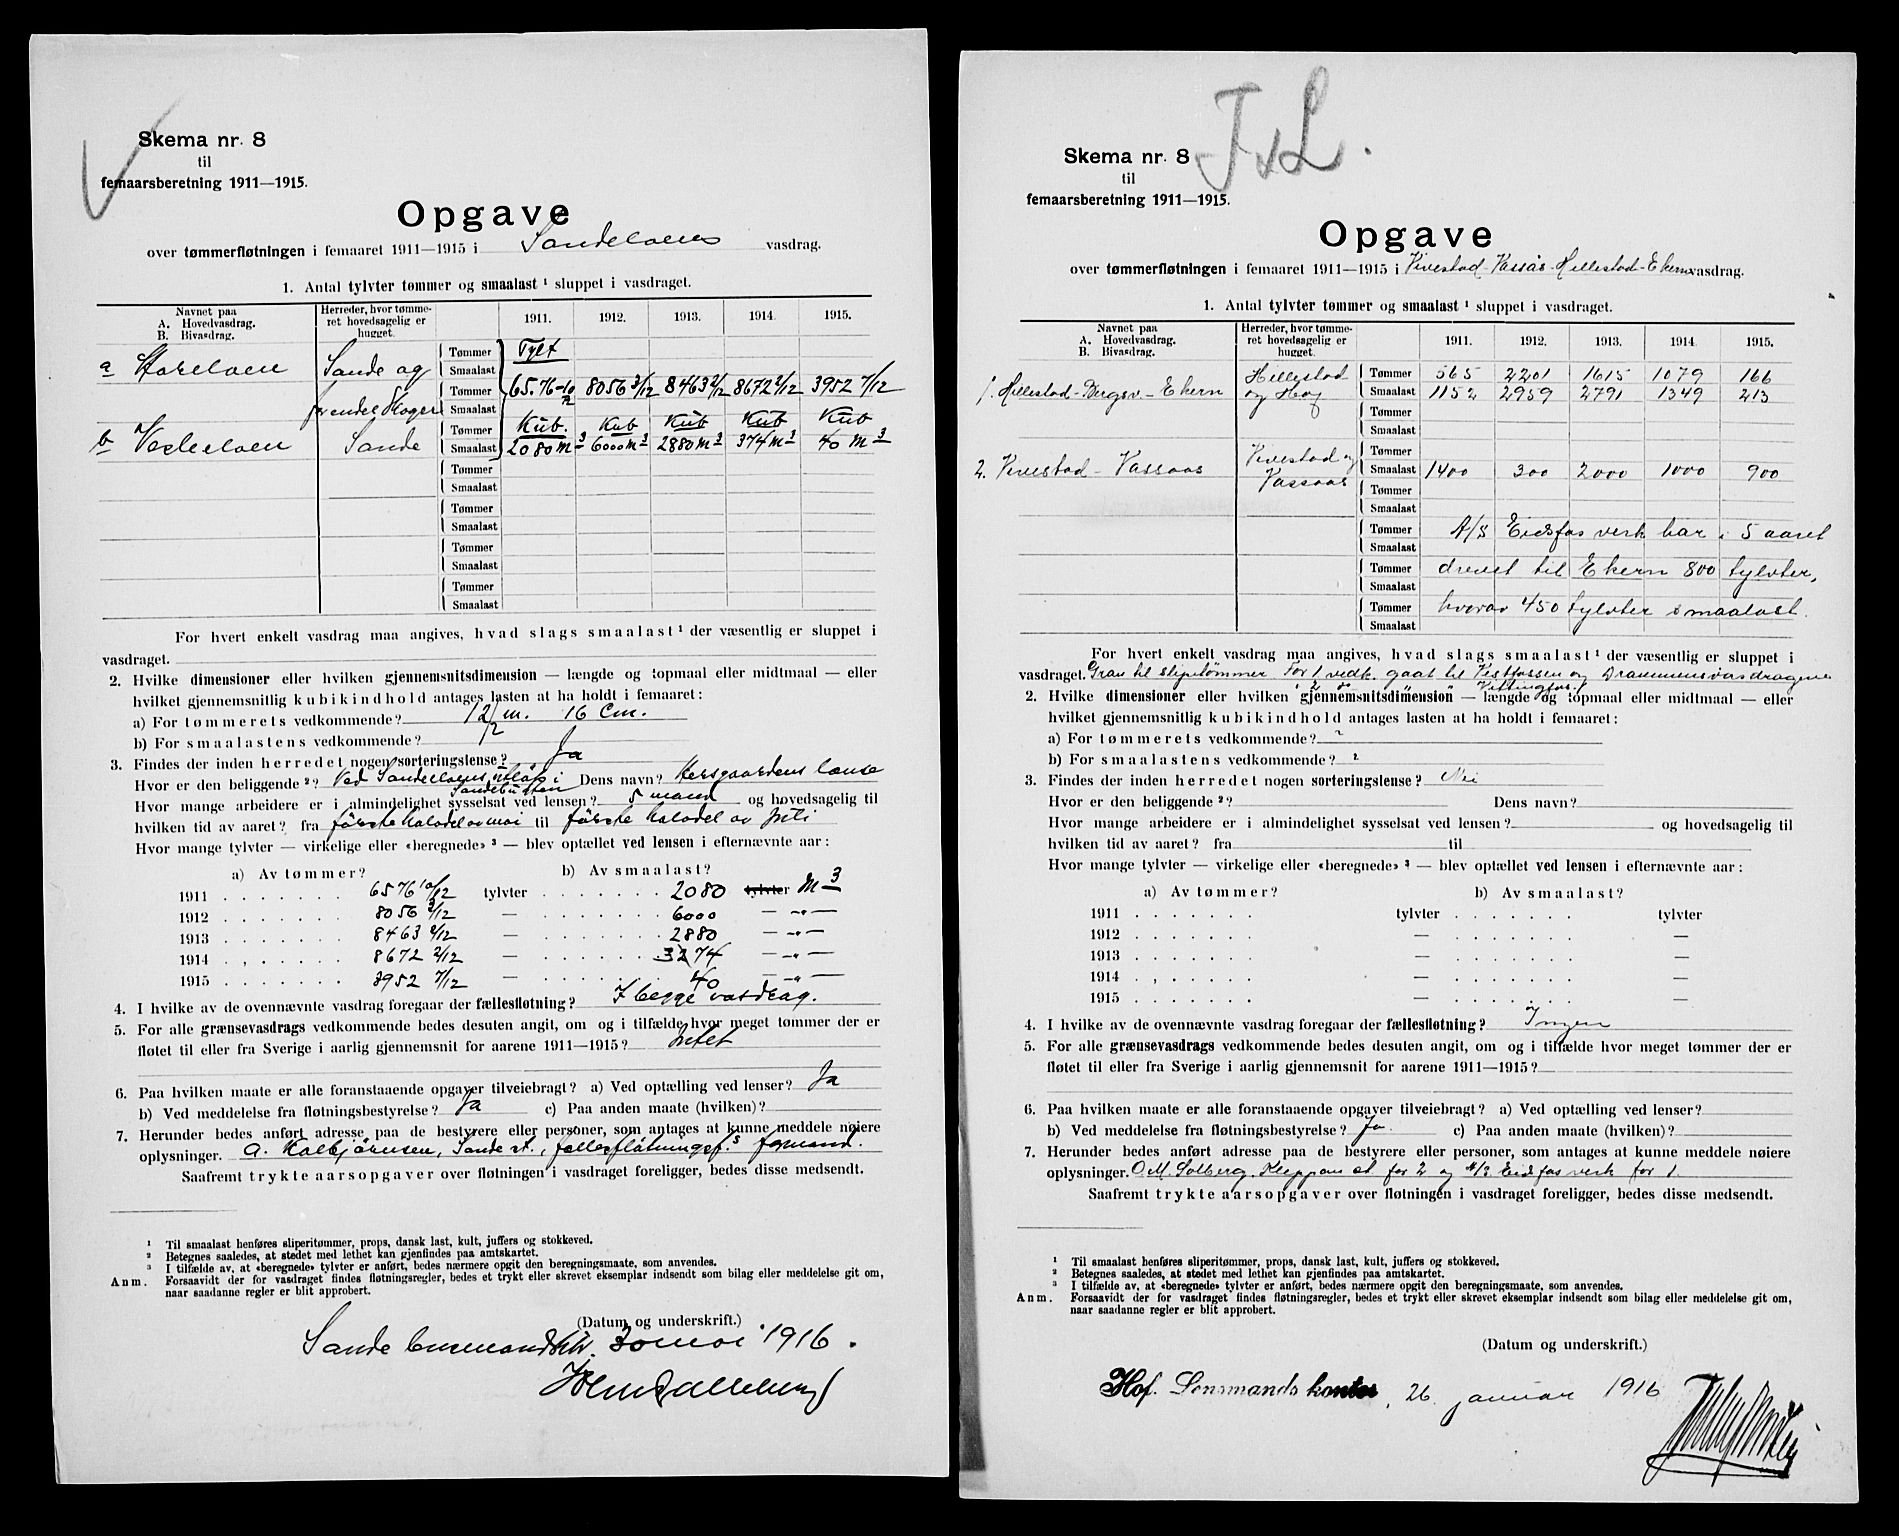 Skema nr. 8
til
femaarsberetning 1911—1915.
Opgave
over tømmerfløtningen i femaaret 1911—1915 i Sandeelvens vasdrag.
1. Antal tylvter tømmer og smaalast ¹ sluppet i vasdraget.
Navnet paa A. Hovedvasdrag. B. Bivasdrag. Herreder, hvor tømmeret hovedsagelig er hugget. 1911. 1912. 1913. 1914. 1915.
Tømmer Tylt
a Storelven Sande og Smaalast
Tømmer 6576 10/12 8056 3/12 8463 2/12 8672 2/12 3952 7/12
en del Skoger Smaalast
Tømmer Kub. Kub Kub Kub Kub
b Vesleelven Sande Smaalast 2080 m3 6000 m3 2880 m3 374 m3 40 m3
Tømmer
Smaalast
Tømmer
Smaalast
Tømmer
Smaalast
Tømmer
Smaalast
For hvert enkelt vasdrag maa angives, hvad slags smaalast ¹ der væsentlig er sluppet i
vasdraget.
2. Hvilke dimensioner eller hvilken gjennemsnitsdimension — længde og topmaal eller midtmaal — eller
hvilket gjennemsnitlig kubikindhold antages lasten at ha holdt i femaaret:
a) For tømmerets vedkommende? 12/12 m. 16 Cm.
b) For smaalastens vedkommende?
3. Findes der inden herredet nogen sorteringslense? Ja
Hvor er den beliggende ²? Ved Sandeelvens utløp i Sandebugten Dens navn? Hersgaardens lense
Hvor mange arbeidere er i almindelighet sysselsat ved lensen? 5 mand og hovedsagelig til
hvilken tid av aaret? fra første halvdel av mai til første halvdel av juli
Hvor mange tylvter — virkelige eller «beregnede» ³ — blev optællet ved lensen i efternævnte aar:
a) Av tømmer? b) Av smaalast?
1911 6576 10/12 tylvter 2080 tylvter M3
1912 8056 3/12 — 6000 — „ —
1913 8463 2/12 — 2880 — „ —
1914 8672 2/12 — 3274 — „ —
1915 3952 7/12 — 40 — „ —
4. I hvilke av de ovennævnte vasdrag foregaar der fællesfløtning? I begge vasdrag.
5. For alle grænsevasdrags vedkommende bedes desuten angit, om og i tilfælde hvor meget tømmer der er
fløtet til eller fra Sverige i aarlig gjennemsnit for aarene 1911—1915? Intet
6. Paa hvilken maate er alle foranstaaende opgaver tilveiebragt? a) Ved optælling ved lenser? Ja
b) Ved meddelelse fra fløtningsbestyrelse? Ja c) Paa anden maate (hvilken)?
7. Herunder bedes anført adresse paa de bestyrere eller personer, som antages at kunne meddele nøiere
oplysninger. A. Kolbjørnsen, Sande st., fællesfløtningsf.s formand.
Saafremt trykte aarsopgaver over fløtningen i vasdraget foreligger, bedes disse medsendt.
¹ Til smaalast henføres sliperitømmer, props, dansk last, kult, juffers og stokkeved.
² Betegnes saaledes, at stedet med lethet kan gjenfindes paa amtskartet.
³ I tilfælde av, at «beregnede» tylvter er anført, bedes nærmere opgit den beregningsmaate, som anvendes.
Anm. Forsaavidt der for vasdraget findes fløtningsregler, bedes et trykt eller skrevet eksemplar indsendt som bilag eller meddelelse git om,
naar saadanne regler er blit approbert.
(Datum og underskrift.)
Sande lensmandsktr. 30 mai 1916.

F. L.
Skema nr. 8
til
femaarsberetning 1911—1915.
Opgave
over tømmerfløtningen i femaaret 1911—1915 i Vivestad-Vassås-Hillestad-Ekern vasdrag.
1. Antal tylvter tømmer og smaalast ¹ sluppet i vasdraget.
Navnet paa A. Hovedvasdrag. B. Bivasdrag. Herreder, hvor tømmeret hovedsagelig er hugget. 1911. 1912. 1913. 1914. 1915.
Hillestad Tømmer 565 2201 1615 1079 166
1. Hillestad-Bergsv-Ekern og Hof Smaalast 1152 2959 2791 1349 213
Tømmer
Smaalast
Vivestad og Tømmer
2. Vivestad - Vassaas Vassaas Smaalast 1400 300 2000 1000 900
Tømmer
Smaalast
Tømmer A/S Eidsfos verk har i 5 aaret
Smaalast
Tømmer drevet til Ekern 800 tylvter,
Smaalast
Tømmer hvorav 450 tylvter smaalast.
Smaalast
For hvert enkelt vasdrag maa angives, hvad slags smaalast ¹ der væsentlig er sluppet i
vasdraget. Gran til sliptømmer For 1 vedk. gaat til Vestfossen og Drammensvasdragene
2. Hvilke dimensioner eller hvilken gjennemsnitsdimension — længde og topmaal eller midtmaal — eller
hvilket gjennemsnitlig kubikindhold antages lasten at ha holdt i femaaret:
a) For tømmerets vedkommende? ?
b) For smaalastens vedkommende? ?
3. Findes der inden herredet nogen sorteringslense? Nei
Hvor er den beliggende ²? Dens navn?
Hvor mange arbeidere er i almindelighet sysselsat ved lensen? og hovedsagelig til
hvilken tid av aaret? fra til
Hvor mange tylvter — virkelige eller «beregnede» ³ — blev optællet ved lensen i efternævnte aar:
a) Av tømmer? b) Av smaalast?
1911 tylvter tylvter
1912 — —
1913 — —
1914 — —
1915 — —
4. I hvilke av de ovennævnte vasdrag foregaar der fællesfløtning? Ingen
5. For alle grænsevasdrags vedkommende bedes desuten angit, om og i tilfælde hvor meget tømmer der er
fløtet til eller fra Sverige i aarlig gjennemsnit for aarene 1911—1915?
6. Paa hvilken maate er alle foranstaaende opgaver tilveiebragt? a) Ved optælling ved lenser?
b) Ved meddelelse fra fløtningsbestyrelse? Ja. c) Paa anden maate (hvilken)?
7. Herunder bedes anført adresse paa de bestyrere eller personer, som antages at kunne meddele nøiere
oplysninger. O.M. Solberg, Kleppan st. for 2 og A/S Eidsfos verk for 1.
Saafremt trykte aarsopgaver over fløtningen i vasdraget foreligger, bedes disse medsendt.
¹ Til smaalast henføres sliperitømmer, props, dansk last, kult, juffers og stokkeved.
² Betegnes saaledes, at stedet med lethet kan gjenfindes paa amtskartet.
³ I tilfælde av, at «beregnede» tylvter er anført, bedes nærmere opgit den beregningsmaate, som anvendes.
Anm. Forsaavidt der for vasdraget findes fløtningsregler, bedes et trykt eller skrevet eksemplar indsendt som bilag eller meddelelse git om,
naar saadanne regler er blit approbert.
(Datum og underskrift.)
Hof. Lensmandskontor, 26. januar 1916